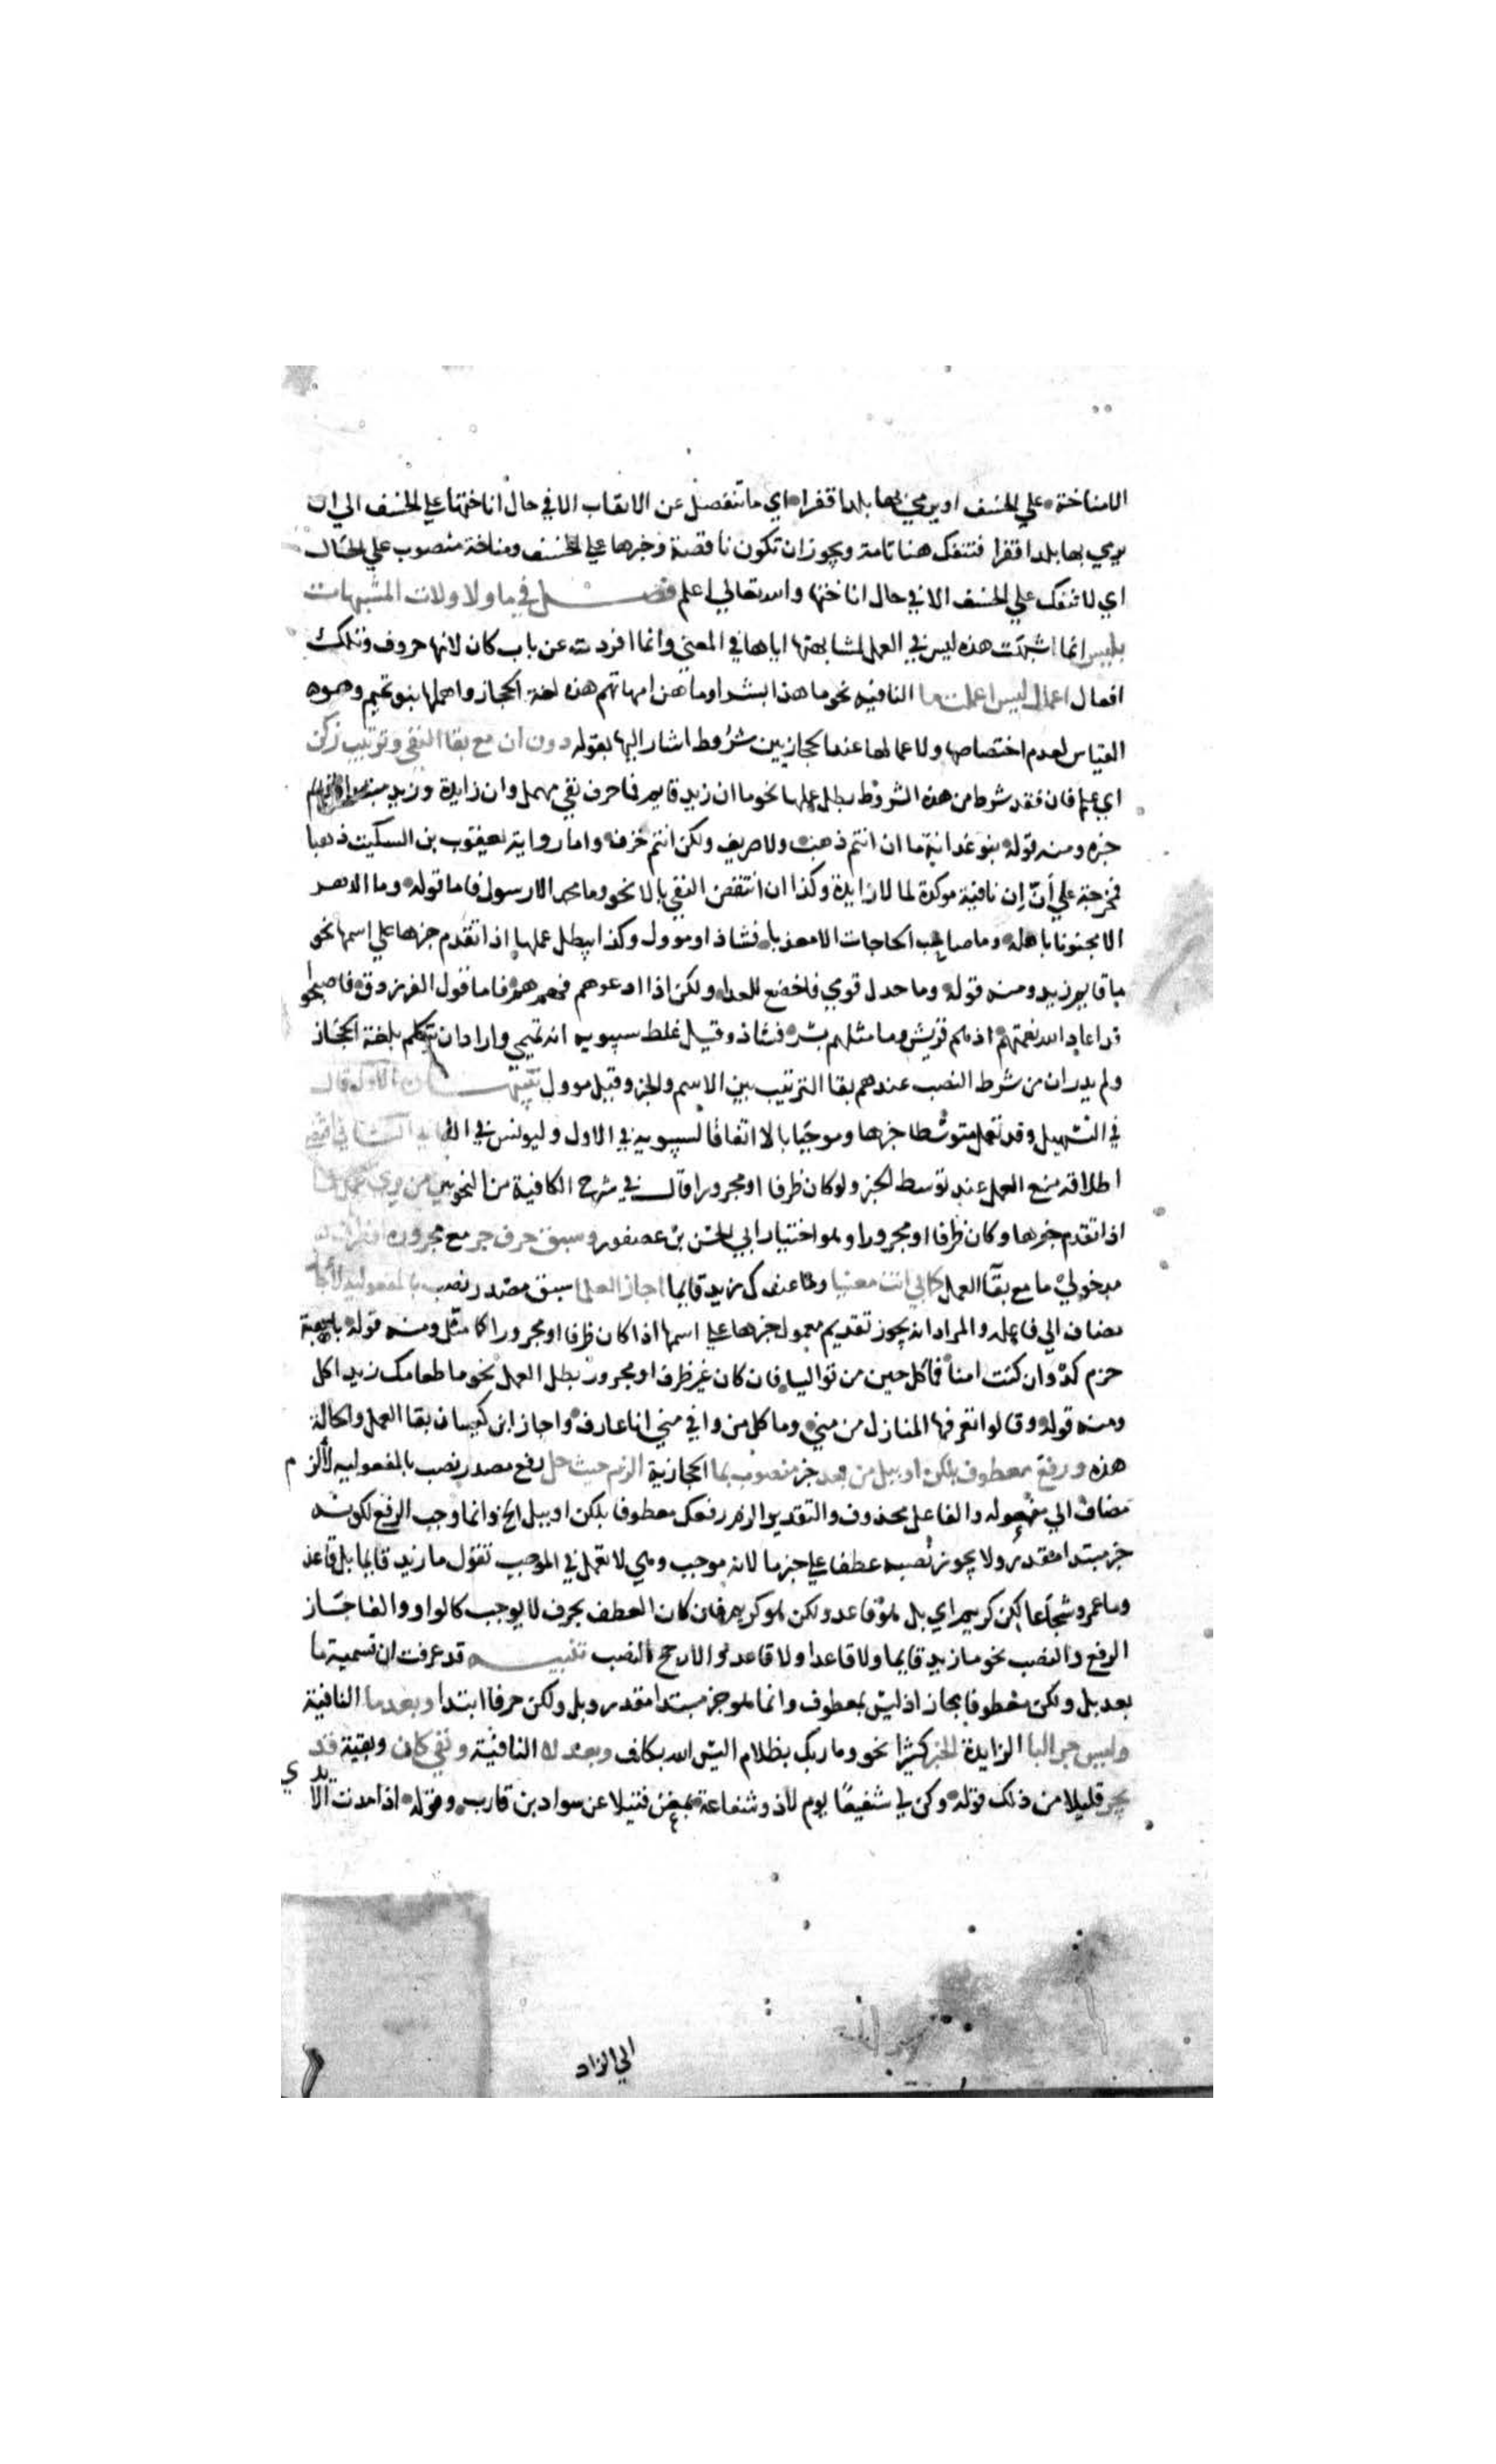 الامناخة على الخسف او يرمي بها بلدا قفرا اي ما تنفصل عن الاتعاب الا في حال اناختها علي الخسف الي ان
يرمي بها بلدا قفرا فتنفك هنا تامة ويجوز ان تكون ناقصة وخبرها علي الخسف ومناخة منصوب علي الحال
اي لا تنفك علي الخسف الا في حال اناختها والله تعالي اعلم فصل في ما ولا ولات المشبهات
بليس انما اشبهت هذه ليس في العمل لمشابهتها اياها في المعني وانما افردت عن باب كان لانها حروف وتلك
افعال اعمال ليس اعملت ما النافيه نحو ما هذا بشرا وما هن امهاتهم هذه لغة الحجاز واهملها بنو تميم وهو
القياس لعدم اختصاصها ولاعمالها عند الحجازيين شروط اشار اليها بقوله دون ان مع بقا النفي وترتيب زكن
اي علم فان فقد شرط من هذه الشروط بطل عملها نحو ما ان زيد قايم فما حرف نفي مهمل وان زايدة وزيد مبتدا وقايم
خبره ومنه قوله بنو غدانة ما ان انتم ذهب ولا صريف ولكن انتم خزف واما رواية يعقوب بن السكيت ذهبا
فمخرجة علي أن إن نافية موكدة لما لا زايدة وكذا ان انتقض النفي بالا نحو وما محمد الا رسول فاما قوله وما الدهر
الا منجنونا باهله وما صاحب الحاجات الا معذبا فشاذ او موول وكذا يبطل عملها اذا تقدم خبرها علي اسمها نحو
ما قايم زيد ومنه قوله وما خذل قومي فاخضع للعدا ولكن اذا ادعوهم فهم هم فاما قول الفرزدق فاصبحوا
قد اعاد الله نعمتهم اذ هم قريش وما مثلهم بشر فشاذ وقيل غلط سيبويه انه تميمي واراد ان يتكلم بلغة الحجاز
ولم يدر ان من شرط النصب عندهم بقا الترتيب بين الاسم والخبر وقيل موول تنبيهان الاول قال
في التسهيل وقد تعمل متوسطا خبرها وموجبا بالا اتفاقا لسيبويه في الاول وليونس في الثاني الثاني اقتضي
اطلاقه منع العمل عند توسط الخبر ولو كان ظرفا او مجرورا قال في شرح الكافية من النحويين من يري عمل ما
اذا تقدم خبرها وكان ظرفا او مجرورا وهو اختيار ابي الحسن بن عصفور وسبق حرف جر مع مجروره او ظرف
مدخولي ما مع بقا العمل كما بي انت معنيا وما عندك زيد قايما اجاز العلما سبق مصدر نصب بالمفعولية لاجاز
مضاف الي فاعله والمراد انه يجوز تقديم معمول خبرها علي اسمها اذا كان ظرفا او مجرورا كما مثل ومنه قوله باهبة
حزم لذ وان كنت امنا فما كل حين من توالي فان كان غير ظرف او مجرور بطل العمل نحو ما طعامك زيد اكل
ومنه قوله وقالوا تعرفها المنازل من مني وما كل من وافي مني انا عارف واجاز ابن كيسان بقا العمل والحالة
هذه ورفع معطوف بلكن او ببل من بعد خبر منصوب بما الحجازية الزم حيث حل رفع مصدر نصب بالمفعوليه لالزم
مضاف الي مفعوله والفاعل محذوف والتقدير الزم رفعك معطوفا بلكن او ببل الخ وانما وجب الرفع لكونه
خبر مبتدا مقدر ولا يجوز نصبه عطفا علي خبر ما لانه موجب وهي لا تعمل في الموجب تقول ما زيد قايما بل قاعد
وما عمرو شجاعا لكن كريم اي بل هو قاعد ولكن هو كريم فان كان العطف بحرف لا يوجب كالواو والفا جاز
الرفع والنصب نحو ما زيد قايما ولا قاعدا ولا قاعد والارجح النصب تنبيه قد عرفت ان تسمية ما
بعد بل ولكن معطوفا مجاز اذ ليس بمعطوف وانما هو خبر مبتدا مقدر وبل ولكن حرفا ابتدا وبعد ما النافية
وليس جر البا الزايدة الخبر كثيرا نحو وما ربك بظلام اليس الله بكاف وبعد لا النافية ونفي كان وبقية قد
يجر قليلا من ذلك قوله وكن لي شفيعا يوم لا ذو شفاعة بمغن فتيلا عن سواد بن قارب وقوله اذا مدت الايدي
الي الزاد